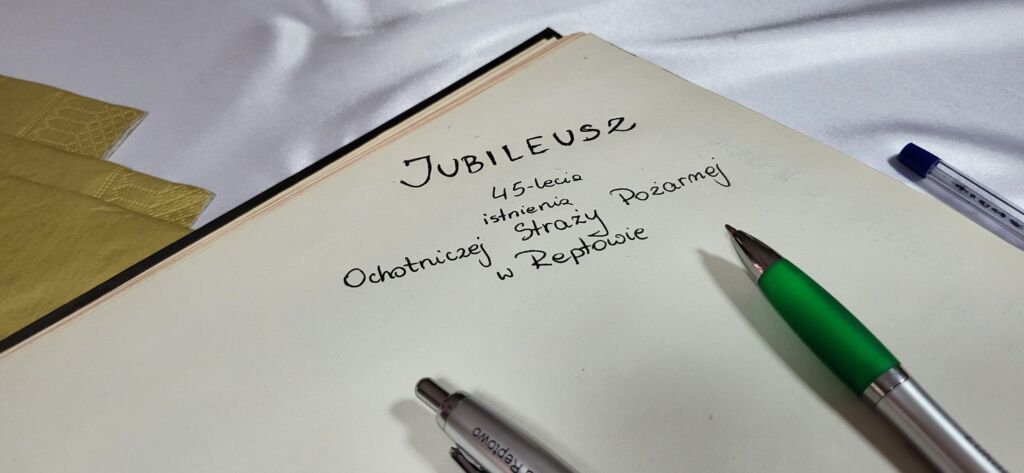 JUBILEUSZ
45-lecia
istnienia
Ochotniczej Straży Pożarnej
w Reptowie
Reptowo